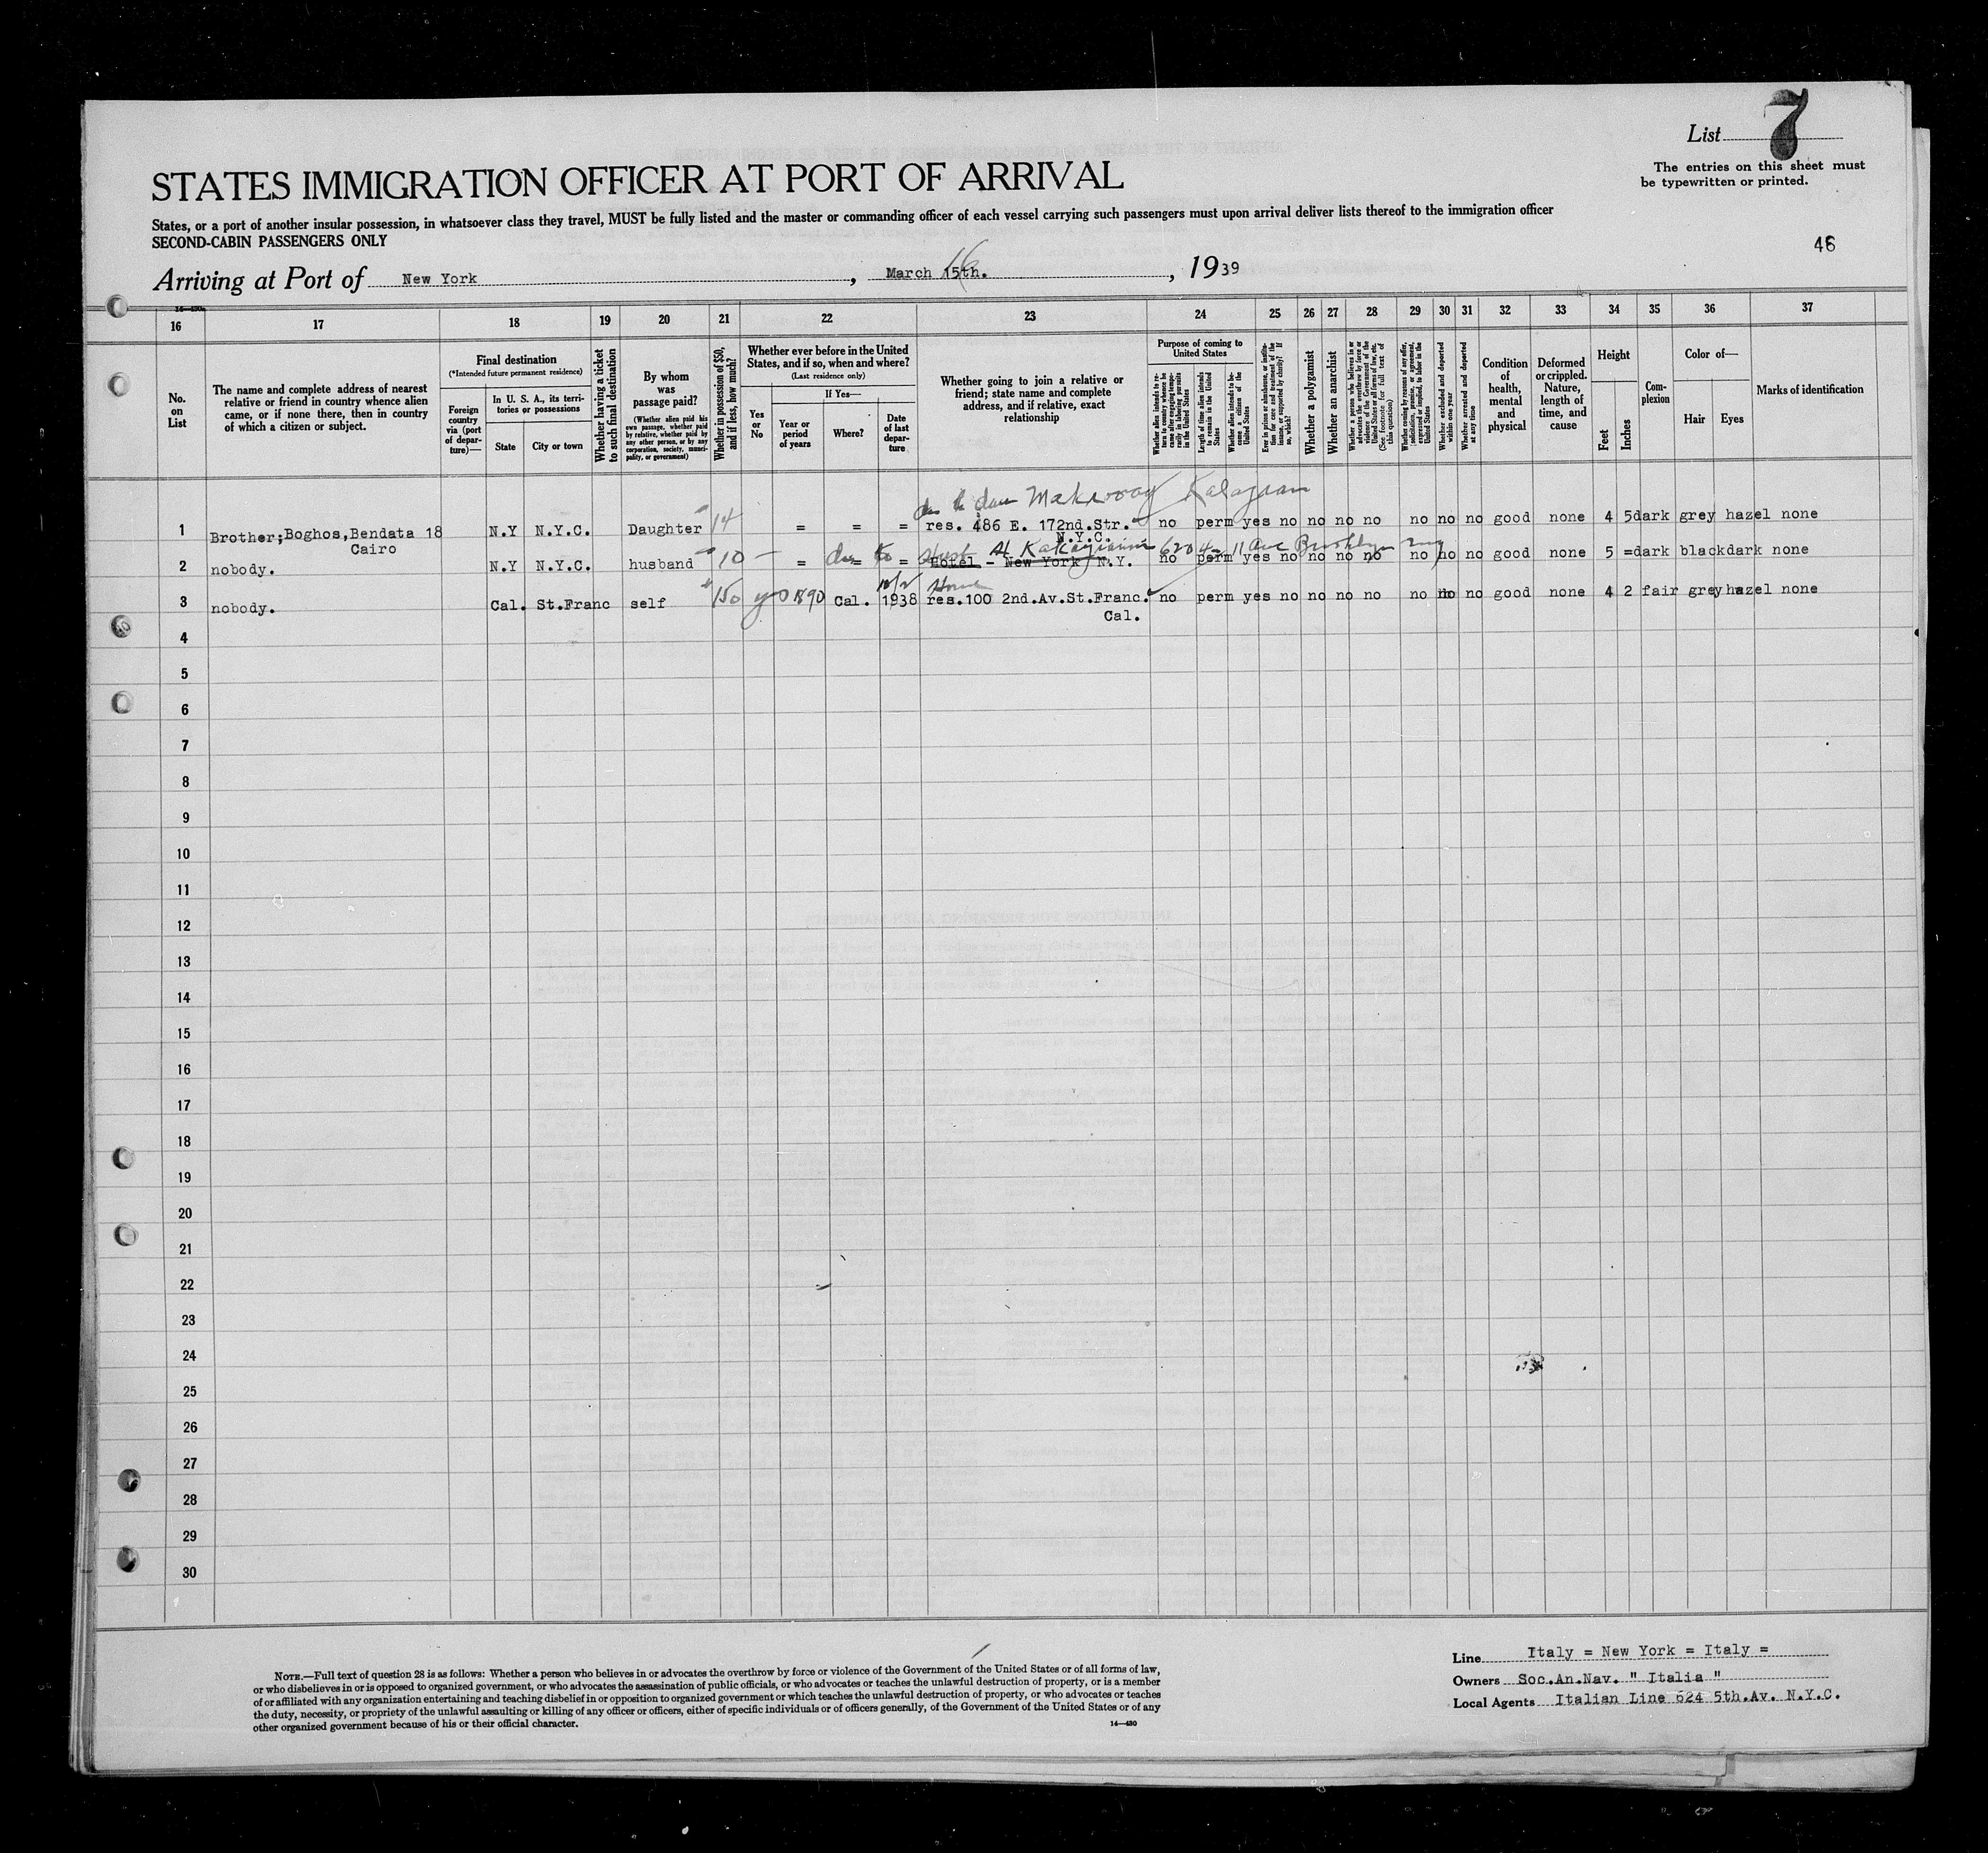 List 7
The entries on this sheet must
be typewritten or printed.
STATES IMMIGRATION OFFICER AT PORT OF ARRIVAL
States, or a port of another insular possession, in whatsoever class they travel, MUST be fully listed and the master or commanding officer of each vessel carrying such passengers must upon arrival deliver lists thereof to the immigration officer
SECOND-CABIN PASSENGERS ONLY
46
Arriving at Port of New York, March 15th. 16, 1939
16 17 18 19 20 21 22 23 24 25 26 27 28 29 30 31 32 33 34 35 36 37
No.
on
List
The name and complete address of nearest
relative or friend in country whence alien
came, or if none there, then in country
of which a citizen or subject.
Final destination
(*Intended future permanent residence)
Foreign
country
via (port
of depar-
ture)—
In U. S. A., its terri-
tories or possessions
State
City or town
Whether having a ticket
to such final destination
By whom
was
passage paid?
(Whether alien paid his
own passage, whether paid
by relative, whether paid by
any other person, or by any
corporation, society, munici-
pality, or government)
Whether in possession of $50,
and if less, how much?
Whether ever before in the United
States, and if so, when and where?
(Last residence only)
Yes
or
No
If Yes—
Year or
period
of years
Where?
Date
of last
depar-
ture
Whether going to join a relative or
friend; state name and complete
address, and if relative, exact
relationship
Purpose of coming to
United States
Whether alien intends to re-
turn to country whence he
came after engaging tempo-
rarily in laboring pursuits
in the United States
Length of time alien intends
to remain in the United
States
Whether alien intends to be-
come a citizen of the
United States
Ever in prison or almshouse, or institu-
tion for care and treatment of the
insane, or supported by charity? If
so, which?
Whether a polygamist
Whether an anarchist
Whether a person who believes in or
advocates the overthrow by force or
violence of the Government of the
United States or all forms of law, etc.
(See footnote for full text of
this question)
Whether coming by reason of any offer,
solicitation, promise, or agreement,
expressed or implied, to labor in the
United States
Whether excluded and deported
within one year
Whether arrested and deported
at any time
Condition
of
health,
mental
and
physical
Deformed
or crippled.
Nature,
length of
time, and
cause
Height
Feet
Inches
Com-
plexion
Color of—
Hair
Eyes
Marks of identification
Kalagaan
1 Brother;Boghos,Bendata 18 N.Y N.Y.C. Daughter 14 = = = res. 486 E. 172nd.Str. no perm yes no no no no no no no good none 4 5 dark grey hazel none
Cairo
N.Y.C.
11 Ave Brooklyn
2 nobody. N.Y N.Y.C. husband 10 - = = = Hotel - New York, N.Y. no perm yes no no no no no no no good none 5 = dark black dark none
3 nobody. Cal. St.Franc self 150 1890 Cal. 1938 res.100 2nd.Av.St.Franc. no perm yes no no no no no no no good none 4 2 fair grey hazel none
Cal.
4
5
6
7
8
9
10
11
12
13
14
15
16
17
18
19
20
21
22
23
24
25
26
27
28
29
30
NOTE.—Full text of question 28 is as follows: Whether a person who believes in or advocates the overthrow by force or violence of the Government of the United States or of all forms of law,
or who disbelieves in or is opposed to organized government, or who advocates the assassination of public officials, or who advocates or teaches the unlawful destruction of property, or is a member
of or affiliated with any organization entertaining and teaching disbelief in or opposition to organized government or which teaches the unlawful destruction of property, or who advocates or teaches
the duty, necessity, or propriety of the unlawful assaulting or killing of any officer or officers, either of specific individuals or of officers generally, of the Government of the United States or of any
other organized government because of his or their official character.
14—430
Line Italy = New York = Italy =
Owners Soc.An.Nav. " Italia "
Local Agents Italian Line 624 5th.Av. N.Y.C.